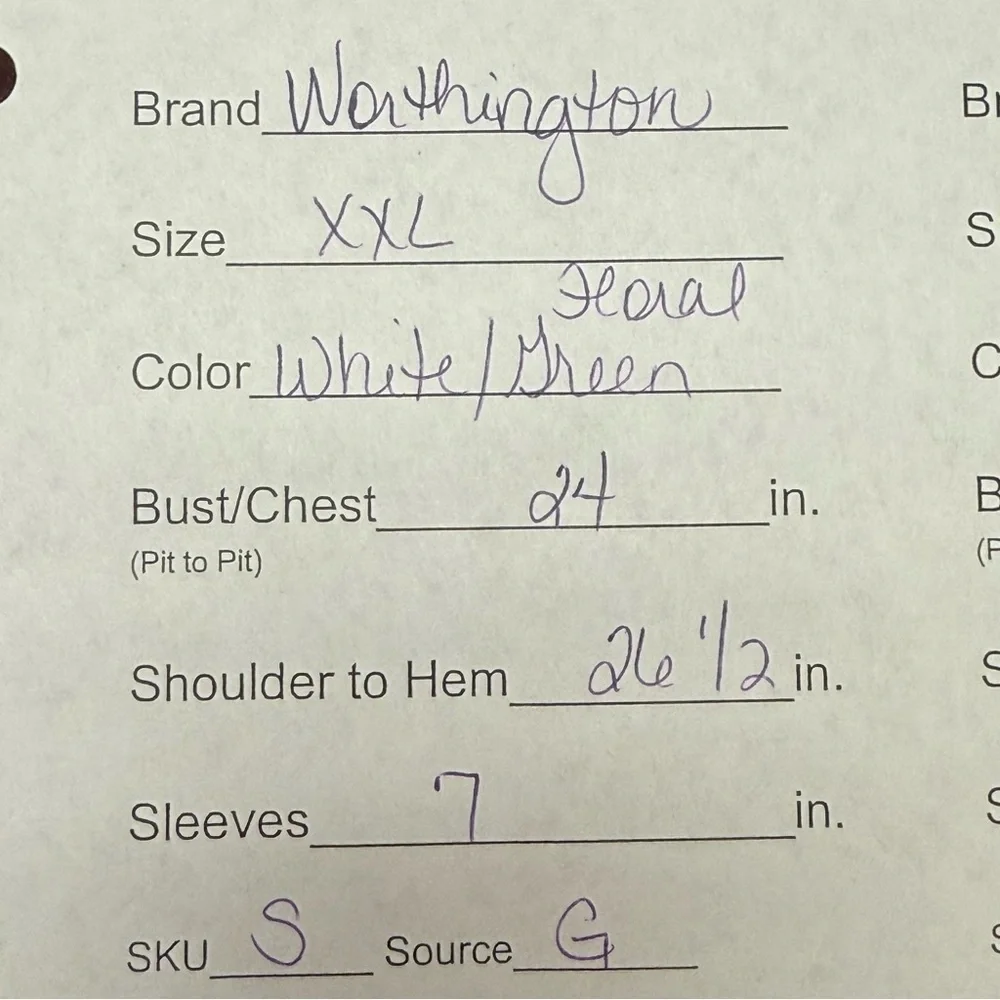 Brand Worthington
Size XXL
Floral
Color White/Green
Bust/Chest 24 in.
(Pit to Pit)
Shoulder to Hem 26 1/2 in.
Sleeves 7 in.
SKU S Source G